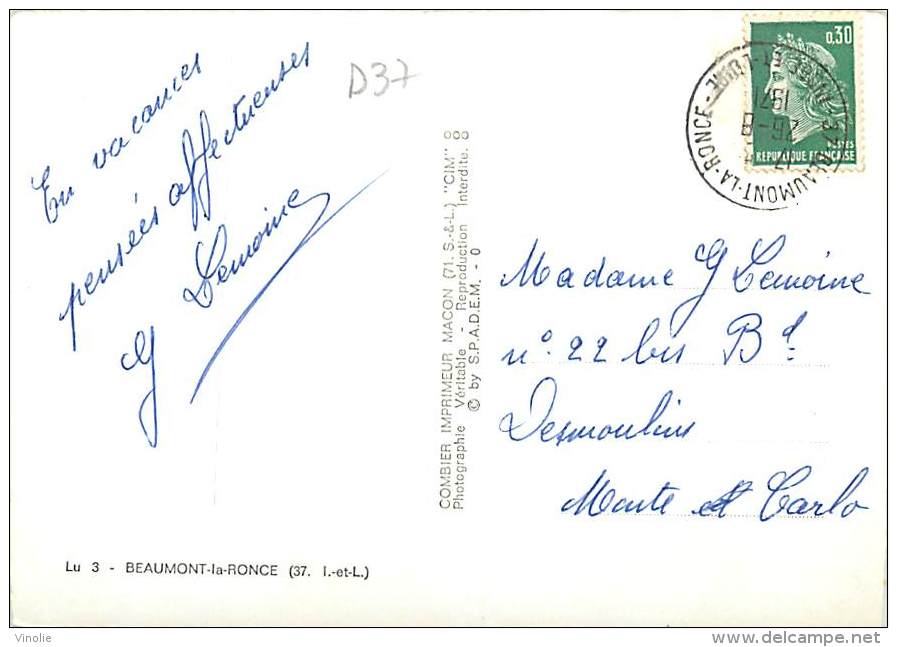 En vacances
pensées affectueuses
G Lemoine
D37
COMBIER IMPRIMEUR MACON (71. S.-&-L.) "CIM"
Photographie Véritable - Reproduction Interdite.
© by S.P.A.D.E.M. - 0
0.30
POSTES
REPUBLIQUE FRANÇAISE
37 BEAUMONT-LA-RONCE - INDRE-ET-LOIRE
26-8
1971
Madame G Lemoine
n°. 22 bis Bd.
Desmoulins
Monte Carlo
Lu 3 - BEAUMONT-la-RONCE (37. I.-et-L.)
Vinolie
http://www.delcampe.net